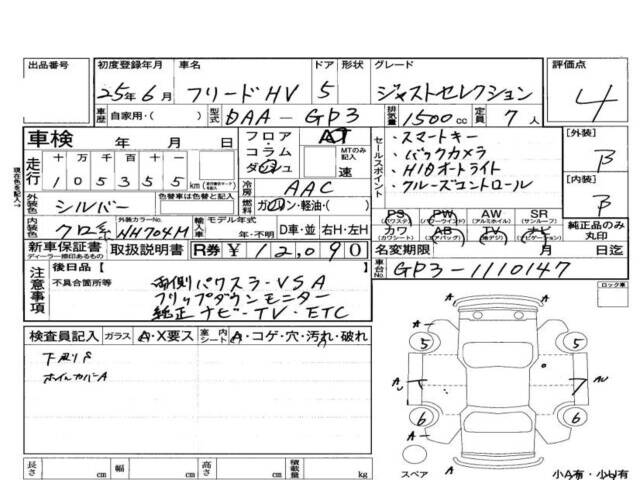 出品番号 初度登録年月 車名 ドア 形状 グレード 評価点
25年6月 フリードHV 5 ジャストセレクション 4
車歴 自家用・( ) 型式 DAA-GP3 排気量 1500cc 定員 7人
車検 年 月 日 フロア・コラム ダッシュ AT MTのみ記入 速
セールスポイント
・スマートキー
・バックカメラ
・HIDオートライト
・クルーズコントロール
[外装] B
[内装] B
走行 十 万 千 百 十 一
105355 km
現在色を記入
外装色 シルバー 色替車は色替と記入 冷房 AAC
燃料 ガソリン・軽油・( )
内装色 クロ系 外装カラーNo. NH704M 輸入車 モデル年式 年・不明 D車・並 右H・左H
PS (パワステ) PW (パワーウインド) AW (アルミホイル) SR (サンルーフ)
カワ (カワシート) AB (エアバッグ) TV (地デジ) ナビ (ナビゲーション)
純正品のみ丸印
新車保証書 ディーラー捺印あるもの 取扱説明書 R券 ¥12,090
名変期限 年 月 日迄
車台No. GP3-1110147
注意事項 後日品【 】
不具合箇所等
両側パワスラ・VSA
フリップダウンモニター
純正ナビ・TV・ETC
ロック車
検査員記入 ガラス A・X要ス 室内シート A・コゲ・穴・汚れ・破れ
下廻りS
ホイルカバーA
A A
5 5
A U T 7 AU
6 6
A A
スペア 小A有・小U有
長さ cm 幅 cm 高さ cm 積載量 kg